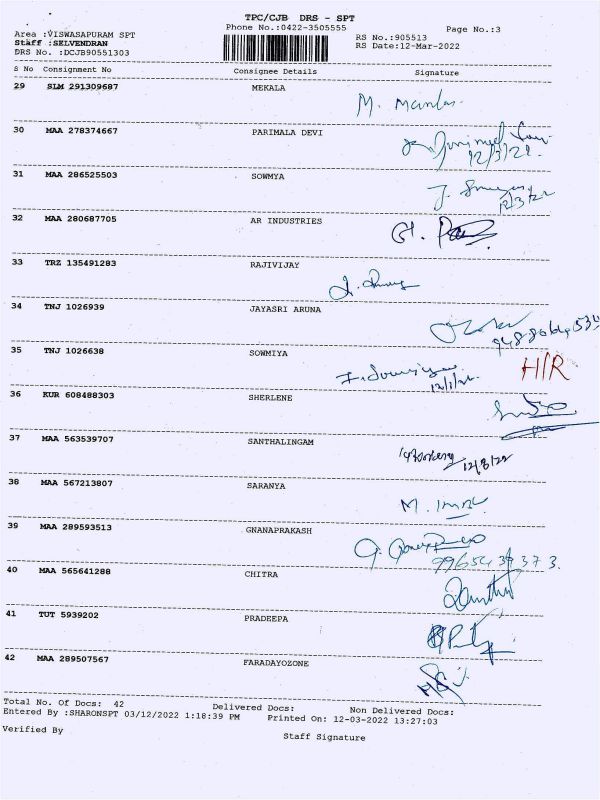 TPC/CJB DRS - SPT
Phone No.:0422-3505555
Page No.:3
Area :VISWASAPURAM SPT
Staff :SELVENDRAN
DRS No. :DCJB90551303
RS No.:905513
RS Date:12-Mar-2022
S No Consignment No Consignee Details Signature
29 SLM 291309687 MEKALA
M.
30 MAA 278374667 PARIMALA DEVI
12/3/22.
31 MAA 286525503 SOWMYA
12/3/22
32 MAA 280687705 AR INDUSTRIES
33 TRZ 135491283 RAJIVIJAY
34 TNJ 1026939 JAYASRI ARUNA
35 TNJ 1026638 SOWMIYA
H/R
36 KUR 608488303 SHERLENE
37 MAA 563539707 SANTHALINGAM
38 MAA 567213807 SARANYA
M.
39 MAA 289593513 GNANAPRAKASH
40 MAA 565641288 CHITRA
41 TUT 5939202 PRADEEPA
42 MAA 289507567 FARADAYOZONE
Total No. Of Docs: 42 Delivered Docs: Non Delivered Docs:
Entered By :SHARONSPT 03/12/2022 1:18:39 PM Printed On: 12-03-2022 13:27:03
Verified By
Staff Signature